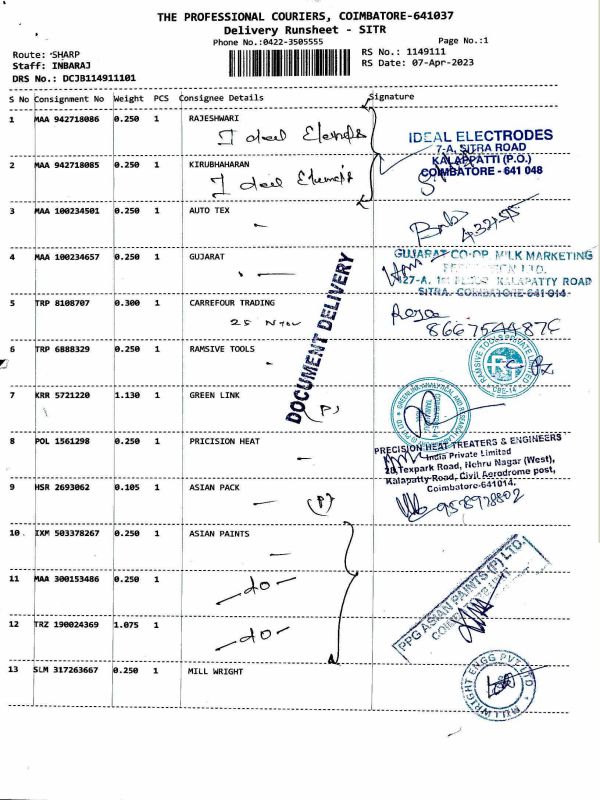 THE PROFESSIONAL COURIERS, COIMBATORE-641037
Delivery Runsheet - SITR
Phone No.:0422-3505555 Page No.:1
Route: SHARP RS No.: 1149111
Staff: INBARAJ RS Date: 07-Apr-2023
DRS No.: DCJB114911101
S No Consignment No Weight PCS Consignee Details Signature
1 MAA 942718086 0.250 1 RAJESHWARI
IDEAL ELECTRODES
7-A, SITRA ROAD
KALAPPATTI (P.O.)
COIMBATORE - 641 048
2 MAA 942718085 0.250 1 KIRUBHAHARAN
3 MAA 100234501 0.250 1 AUTO TEX
4 MAA 100234657 0.250 1 GUJARAT
GUJARAT CO-OP. MILK MARKETING
KALAPATTY ROAD
SITRA. COIMBATORE-641 014.
DOCUMENT DELIVERY
5 TRP 8108707 0.300 1 CARREFOUR TRADING
6 TRP 6888329 0.250 1 RAMSIVE TOOLS
RAMSIVE TOOLS PRIVATE LIMITED
CBE-14
7 KRR 5721220 1.130 1 GREEN LINK
(P)
8 POL 1561298 0.250 1 PRICISION HEAT
PRECISION HEAT TREATERS & ENGINEERS
India Private Limited
Texpark Road, Nehru Nagar (West),
Kalapatty Road, Civil Aerodrome post,
Coimbatore-641014.
9 HSR 2693062 0.105 1 ASIAN PACK
(P)
958978802
10 IXM 503378267 0.250 1 ASIAN PAINTS
11 MAA 300153486 0.250 1
-do-
PPG ASIAN PAINTS (P) LTD.
12 TRZ 190024369 1.075 1
-do-
13 SLM 317263667 0.250 1 MILL WRIGHT
MILLWRIGHT ENGG PVT LTD